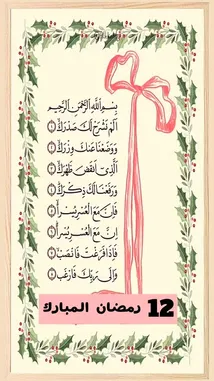 بِسْمِ اللَّهِ الرَّحْمَٰنِ الرَّحِيمِ
أَلَمْ نَشْرَحْ لَكَ صَدْرَكَ ١
وَوَضَعْنَا عَنكَ وِزْرَكَ ٢
الَّذِي أَنقَضَ ظَهْرَكَ ٣
وَرَفَعْنَا لَكَ ذِكْرَكَ ٤
فَإِنَّ مَعَ الْعُسْرِ يُسْرًا ٥
إِنَّ مَعَ الْعُسْرِ يُسْرًا ٦
فَإِذَا فَرَغْتَ فَانصَبْ ٧
وَإِلَىٰ رَبِّكَ فَارْغَب ٨
12 رمضان المبارك